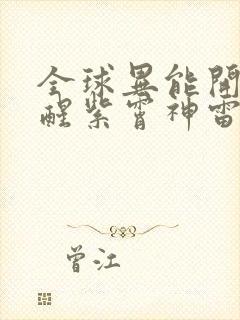 全球異能開
醒紫霄神雷
曾江